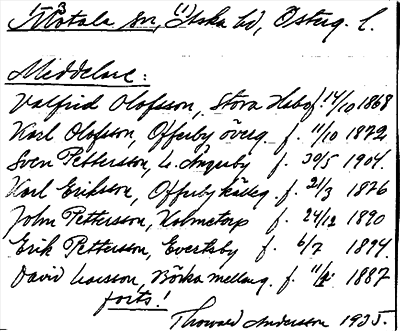 Motala sn, Aska hd, Österg. l.
Meddelare:
Valfrid Olofsson, Stora f. 14/10 1868
Karl Olofsson, Offerby överg. f. 11/10 1872
Sven Pettersson, L. f. 30/5 1904.
Karl Eriksson, Offerby f. 21/3 1876
John Pettersson, Holmetorp f. 24/12 1890
Erik Pettersson, Evertsby f. 6/7 1894.
David Larsson, Börka mellang. f. 1887
forts!
Thorvald Andersson 1935.